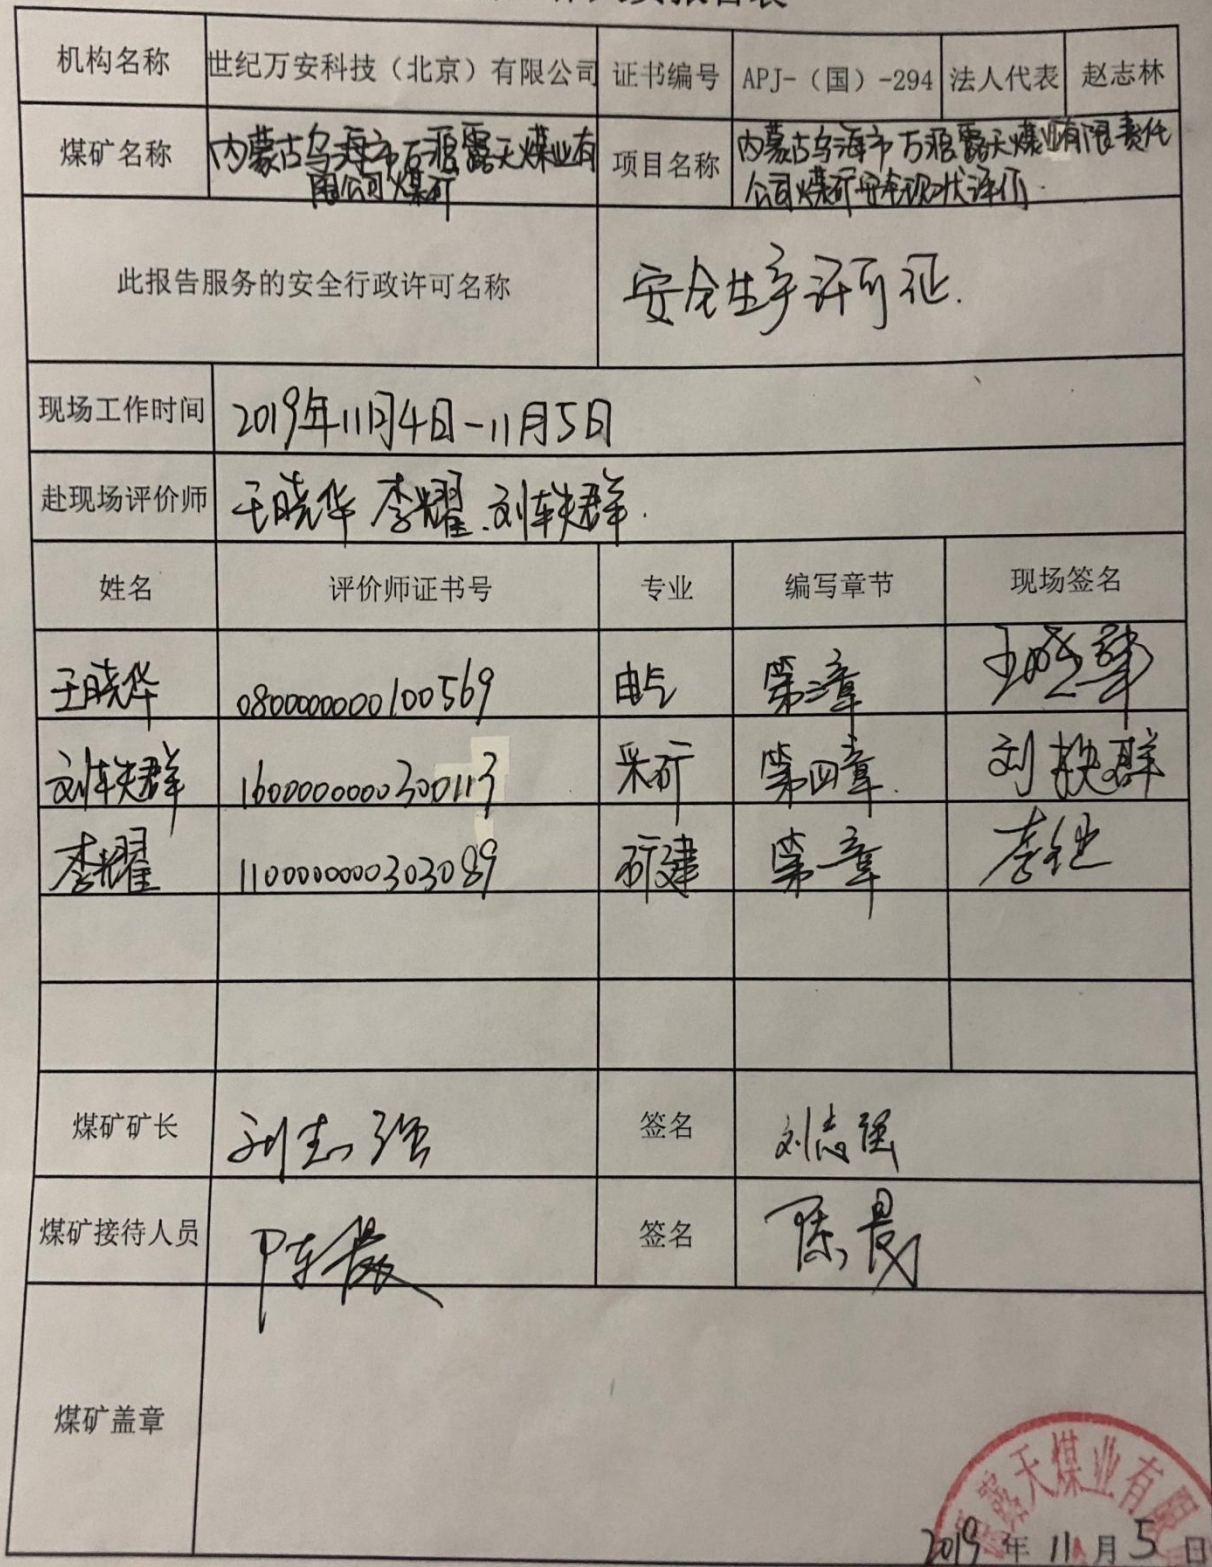 机构名称 世纪万安科技（北京）有限公司 证书编号 APJ-（国）-294 法人代表 赵志林
煤矿名称 内蒙古乌海市万源露天煤业有
限公司煤矿
项目名称 内蒙古乌海市万源露天煤业有限责任
公司煤矿安全现状评价.
此报告服务的安全行政许可名称 安全生产许可证.
现场工作时间 2019年11月4日-11月5日
赴现场评价师 王晓华 李耀.刘轶群.
姓名 评价师证书号 专业 编写章节 现场签名
王晓华 0800000000100569 电气 第三章 王晓华
刘轶群 1600000000300113 采矿 第四章. 刘轶群
李耀 1100000000303089 矿建 第一章
煤矿矿长 刘志强 签名 刘志强
煤矿接待人员 陈晨 签名 陈晨
煤矿盖章
露天煤业有限
2019年11月5日